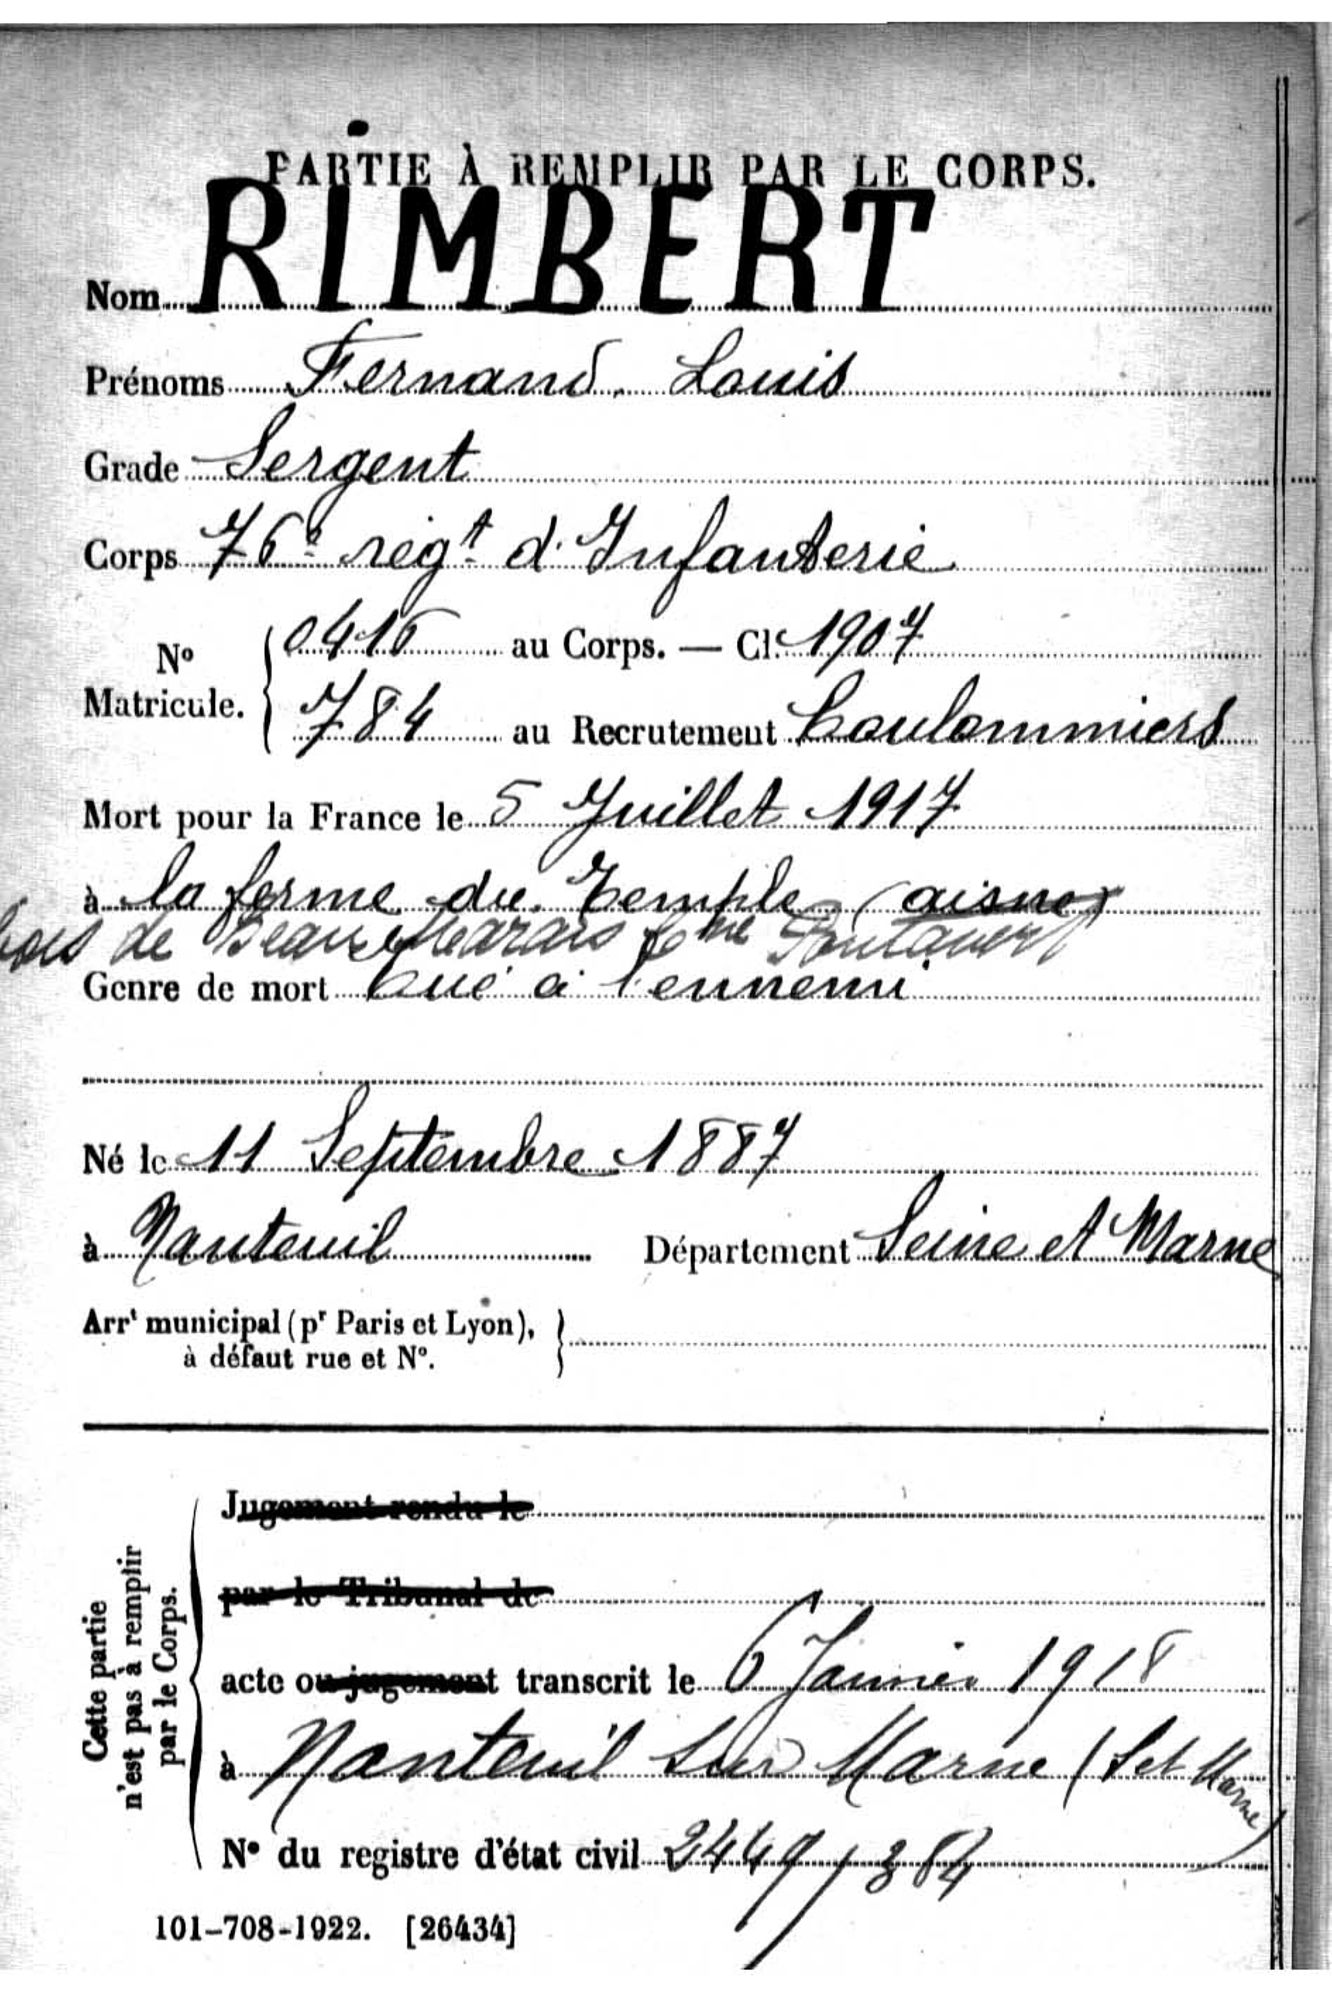 PARTIE À REMPLIR PAR LE CORPS.
Nom RIMBERT
Prénoms Fernand, Louis
Grade Sergent
Corps 76e régt d'Infanterie
No Matricule. 0416 au Corps. — Cl. 1907
784 au Recrutement Coulommiers
Mort pour la France le 5 Juillet 1917
à la ferme du Temple (aisne)
bois de Beau Marais Cne Pontavert
Genre de mort tué à l'ennemi
Né le 11 Septembre 1887
à Nanteuil Département Seine et Marne
Arrt municipal (pr Paris et Lyon),
à défaut rue et No.
Cette partie n'est pas à remplir par le Corps.
Jugement rendu le
par le Tribunal de
acte ou jugement transcrit le 6 Janvier 1918
à Nanteuil sur Marne (S et Marne)
No du registre d'état civil 2449/384
101-708-1922. [26434]